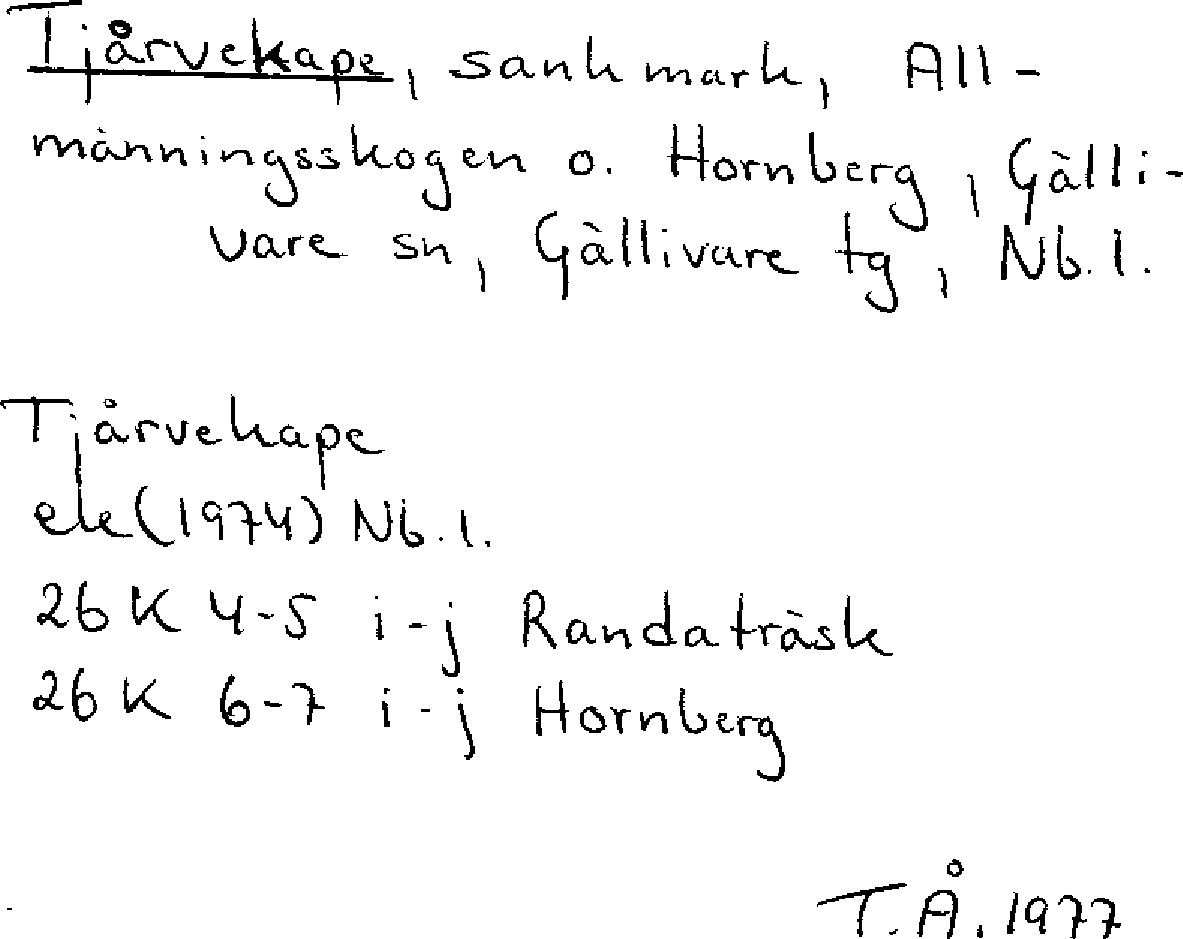 Tjårvekape, sankmark, All-
männingsskogen o. Hornberg, Gälli-
vare sn, Gällivare tg, Nb. l.
Tjårvekape
ek (1974) Nb. l.
26 K 4-5 i-j Randaträsk
26 K 6-7 i-j Hornberg
T.Å. 1977